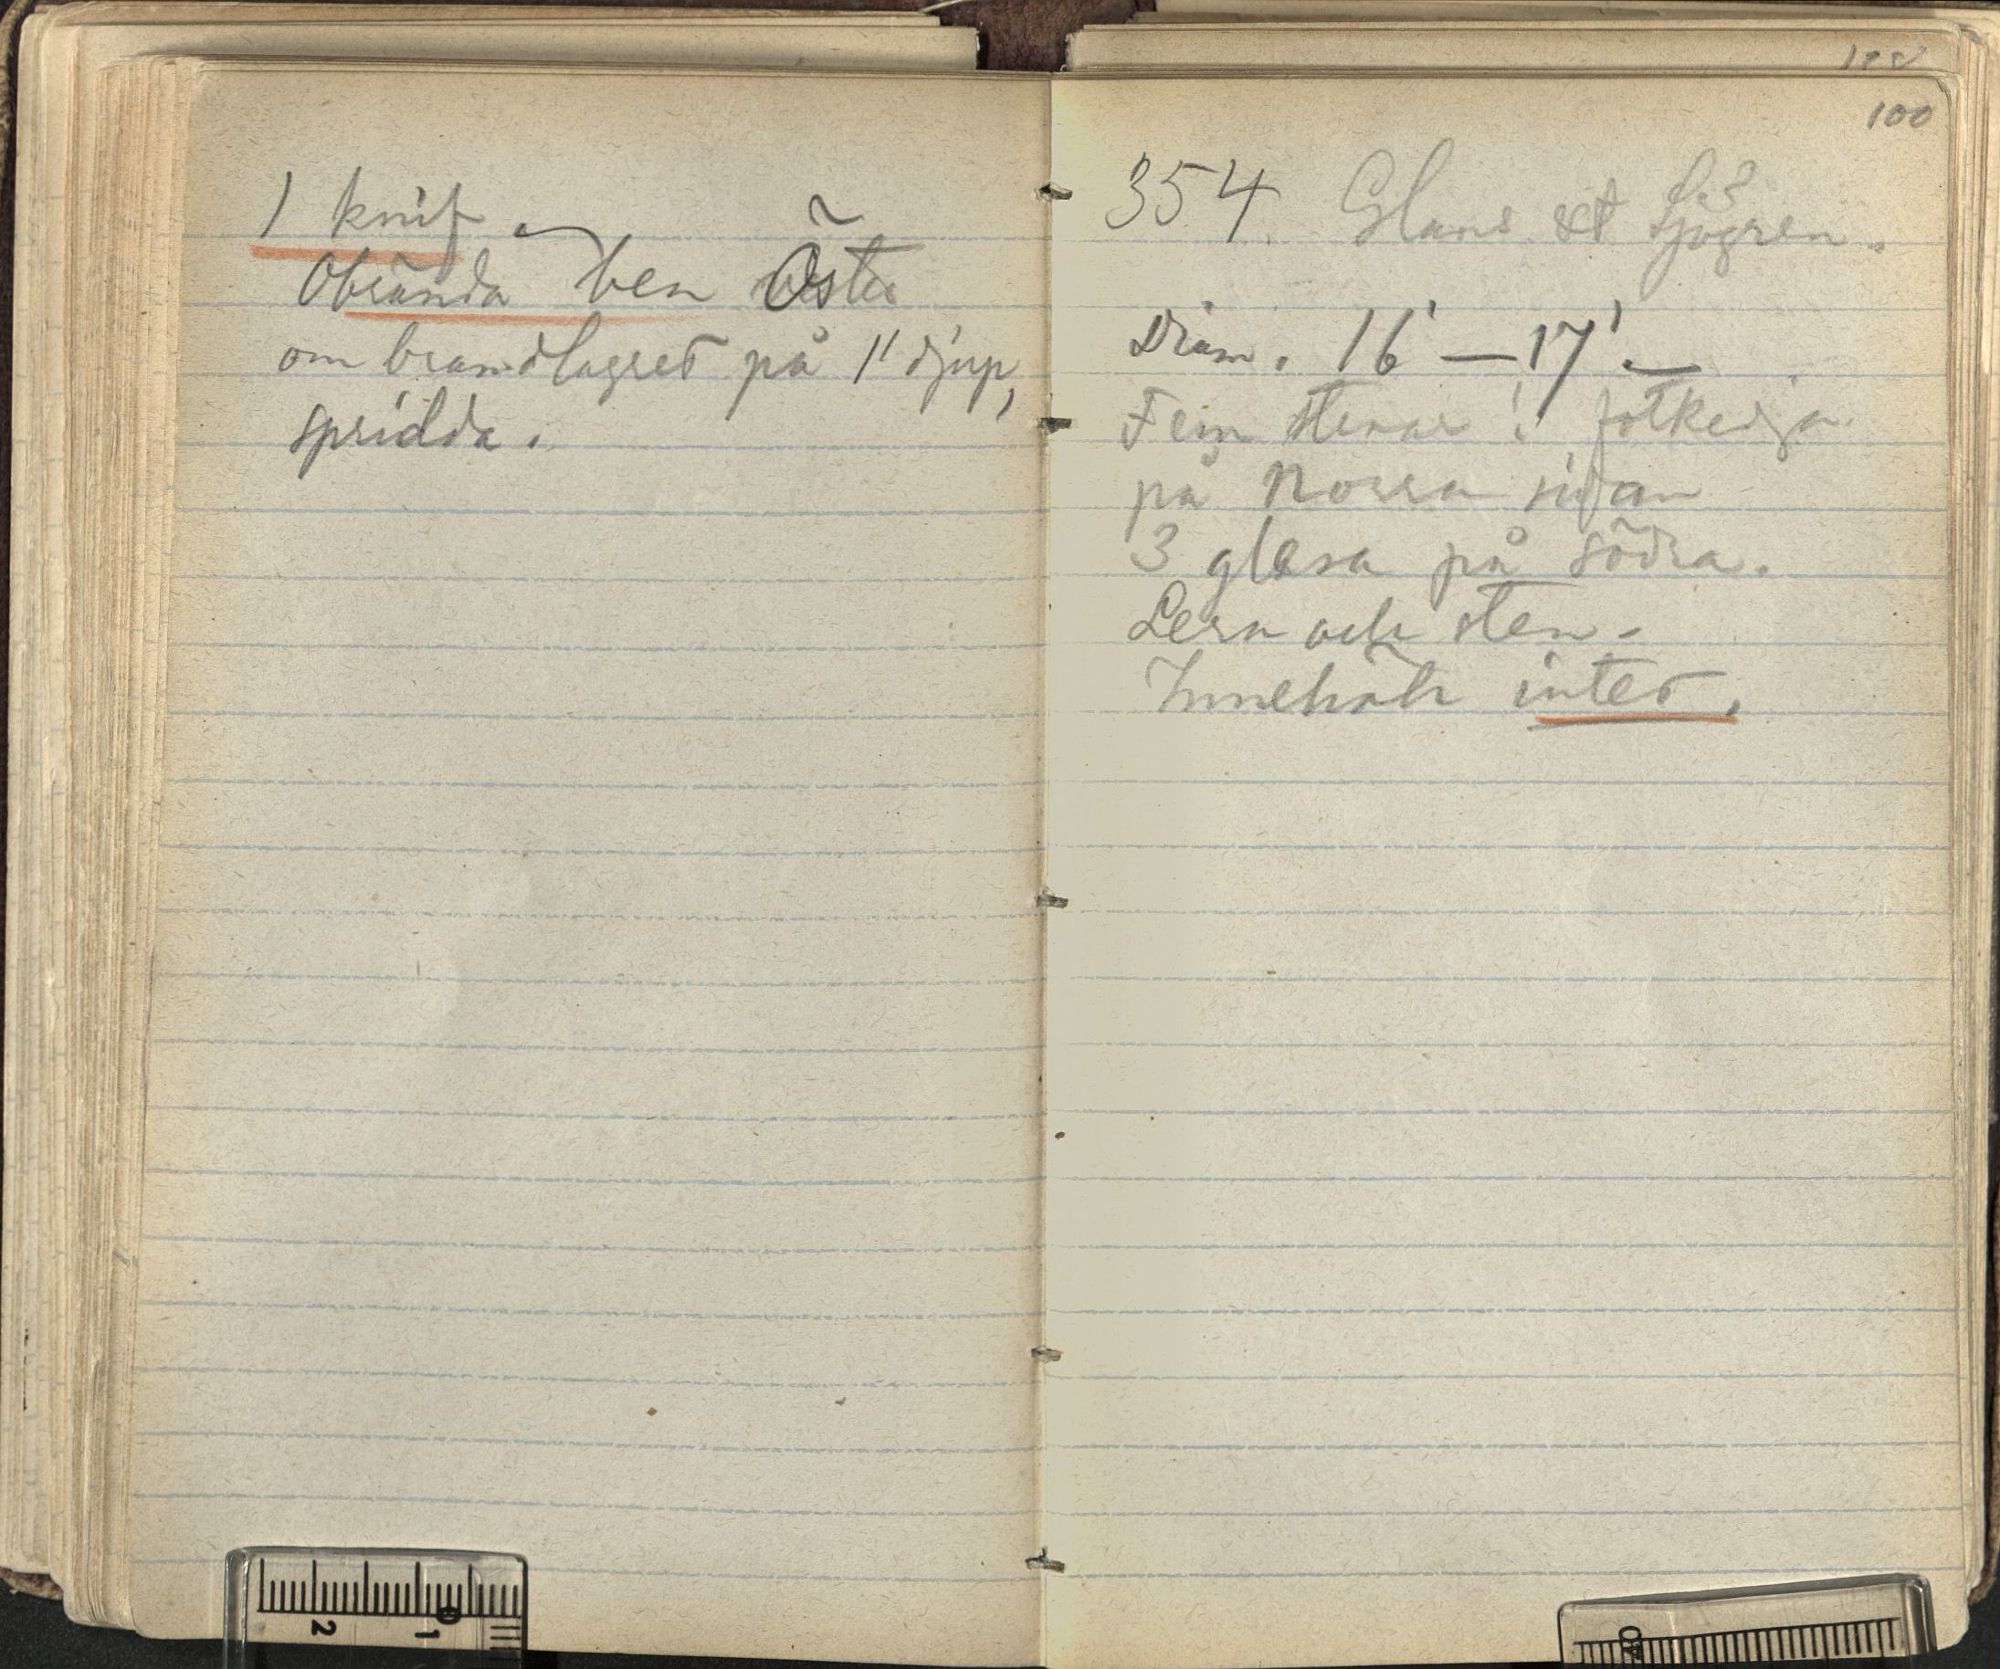 1 knif
Obrända ben Öster
om brandlagret på 1' djup,
spridda.
100
354. Glans et Sjögren.
Diam. 16' — 17'.
Fem stenar i fotkedja
på Norra sidan
3 glesa på södra.
Lera och sten.
Innehöll intet.
2
0
1